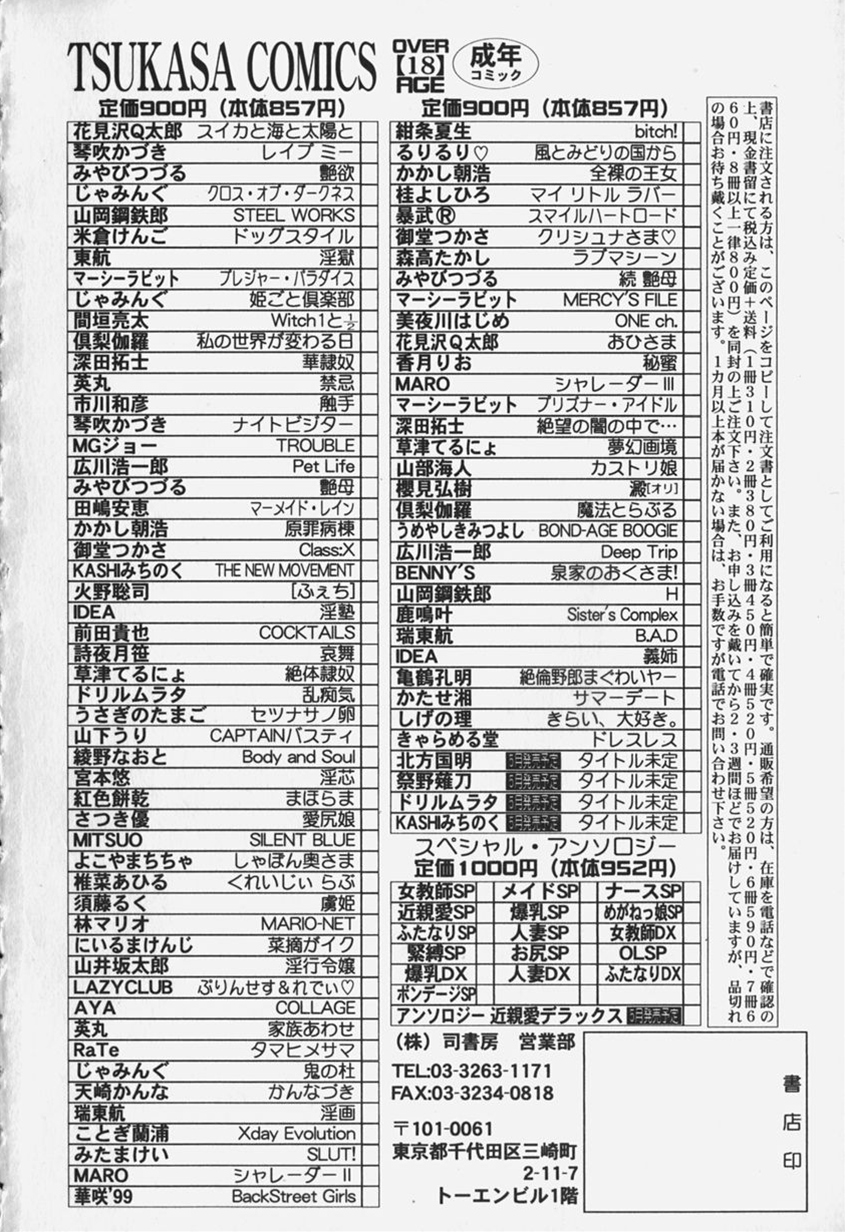 TSUKASA COMICS
OVER
【18】
AGE
成年
コミック
定価900円（本体857円）
花見沢Q太郎 スイカと海と太陽と
琴吹かづき レイプ ミー
みやびつづる 艶欲
じゃみんぐ クロス・オブ・ダークネス
山岡鋼鉄郎 STEEL WORKS
米倉けんご ドッグスタイル
東航 淫獄
マーシーラビット プレジャー・パラダイス
じゃみんぐ 姫ごと倶楽部
間垣亮太 Witch1と½
倶梨伽羅 私の世界が変わる日
深田拓士 華隷奴
英丸 禁忌
市川和彦 触手
琴吹かづき ナイトビジター
MGジョー TROUBLE
広川浩一郎 Pet Life
みやびつづる 艶母
田嶋安恵 マーメイド・レイン
かかし朝浩 原罪病棟
御堂つかさ Class:X
KASHIみちのく THE NEW MOVEMENT
火野聡司 [ふぇち]
IDEA 淫塾
前田貴也 COCKTAILS
詩夜月笹 哀舞
草津てるにょ 絶体隷奴
ドリルムラタ 乱痴気
うさぎのたまご セツナサノ卵
山下うり CAPTAINバスティ
綾野なおと Body and Soul
宮本悠 淫芯
紅色餅乾 まほらま
さつき優 愛尻娘
MITSUO SILENT BLUE
よこやまちちゃ しゃぼん奥さま
椎菜あひる くれいじぃ らぶ
須藤るく 虜姫
林マリオ MARIO-NET
にいるまけんじ 菜摘がイク
山井坂太郎 淫行令嬢
LAZYCLUB ぷりんせす&れでぃ♡
AYA COLLAGE
英丸 家族あわせ
RaTe タマヒメサマ
じゃみんぐ 鬼の杜
天崎かんな かんなづき
瑞東航 淫画
ことぎ蘭浦 Xday Evolution
みたまけい SLUT!
MARO シャレーダーⅡ
華咲'99 BackStreet Girls
定価900円（本体857円）
紺条夏生 bitch!
るりるり♡ 風とみどりの国から
かかし朝浩 全裸の王女
桂よしひろ マイ リトル ラバー
暴武Ⓡ スマイルハートロード
御堂つかさ クリシュナさま♡
森高たかし ラブマシーン
みやびつづる 続 艶母
マーシーラビット MERCY'S FILE
美夜川はじめ ONE ch.
花見沢Q太郎 おひさま
香月りお 秘蜜
MARO シャレーダーⅢ
マーシーラビット プリズナー・アイドル
深田拓士 絶望の闇の中で…
草津てるにょ 夢幻画境
山部海人 カストリ娘
櫻見弘樹 澱[オリ]
倶梨伽羅 魔法とらぶる
うめやしきみつよし BOND-AGE BOOGIE
広川浩一郎 Deep Trip
BENNY'S 泉家のおくさま!
山岡鋼鉄郎 H
鹿鳴叶 Sister's Complex
瑞東航 B.A.D
IDEA 義姉
亀鶴孔明 絶倫野郎まぐわいヤー
かたせ湘 サマーデート
しげの理 きらい、大好き。
きゃらめる堂 ドレスレス
北方国明 タイトル未定
祭野薙刀 タイトル未定
ドリルムラタ タイトル未定
KASHIみちのく タイトル未定
スペシャル・アンソロジー
定価1000円（本体952円）
女教師SP メイドSP ナースSP
近親愛SP 爆乳SP めがねっ娘SP
ふたなりSP 人妻SP 女教師DX
緊縛SP お尻SP OLSP
爆乳DX 人妻DX ふたなりDX
ボンデージSP
アンソロジー 近親愛デラックス
（株）司書房 営業部
TEL:03-3263-1171
FAX:03-3234-0818
〒101-0061
東京都千代田区三崎町
2-11-7
トーエンビル1階
書店印
書店に注文される方は、このページをコピーして注文書としてご利用になると簡単で確実です。通販希望の方は、在庫を電話などで確認の
上、現金書留にて税込み定価＋送料（1冊310円・2冊380円・3冊450円・4冊520円・5冊520円・6冊590円・7冊6
60円・8冊以上一律800円）を同封の上ご注文下さい。また、お申し込みを戴いてから2・3週間ほどでお届けしていますが、品切れ
の場合お待ち戴くことがございます。1カ月以上本が届かない場合は、お手数ですが電話でお問い合わせ下さい。